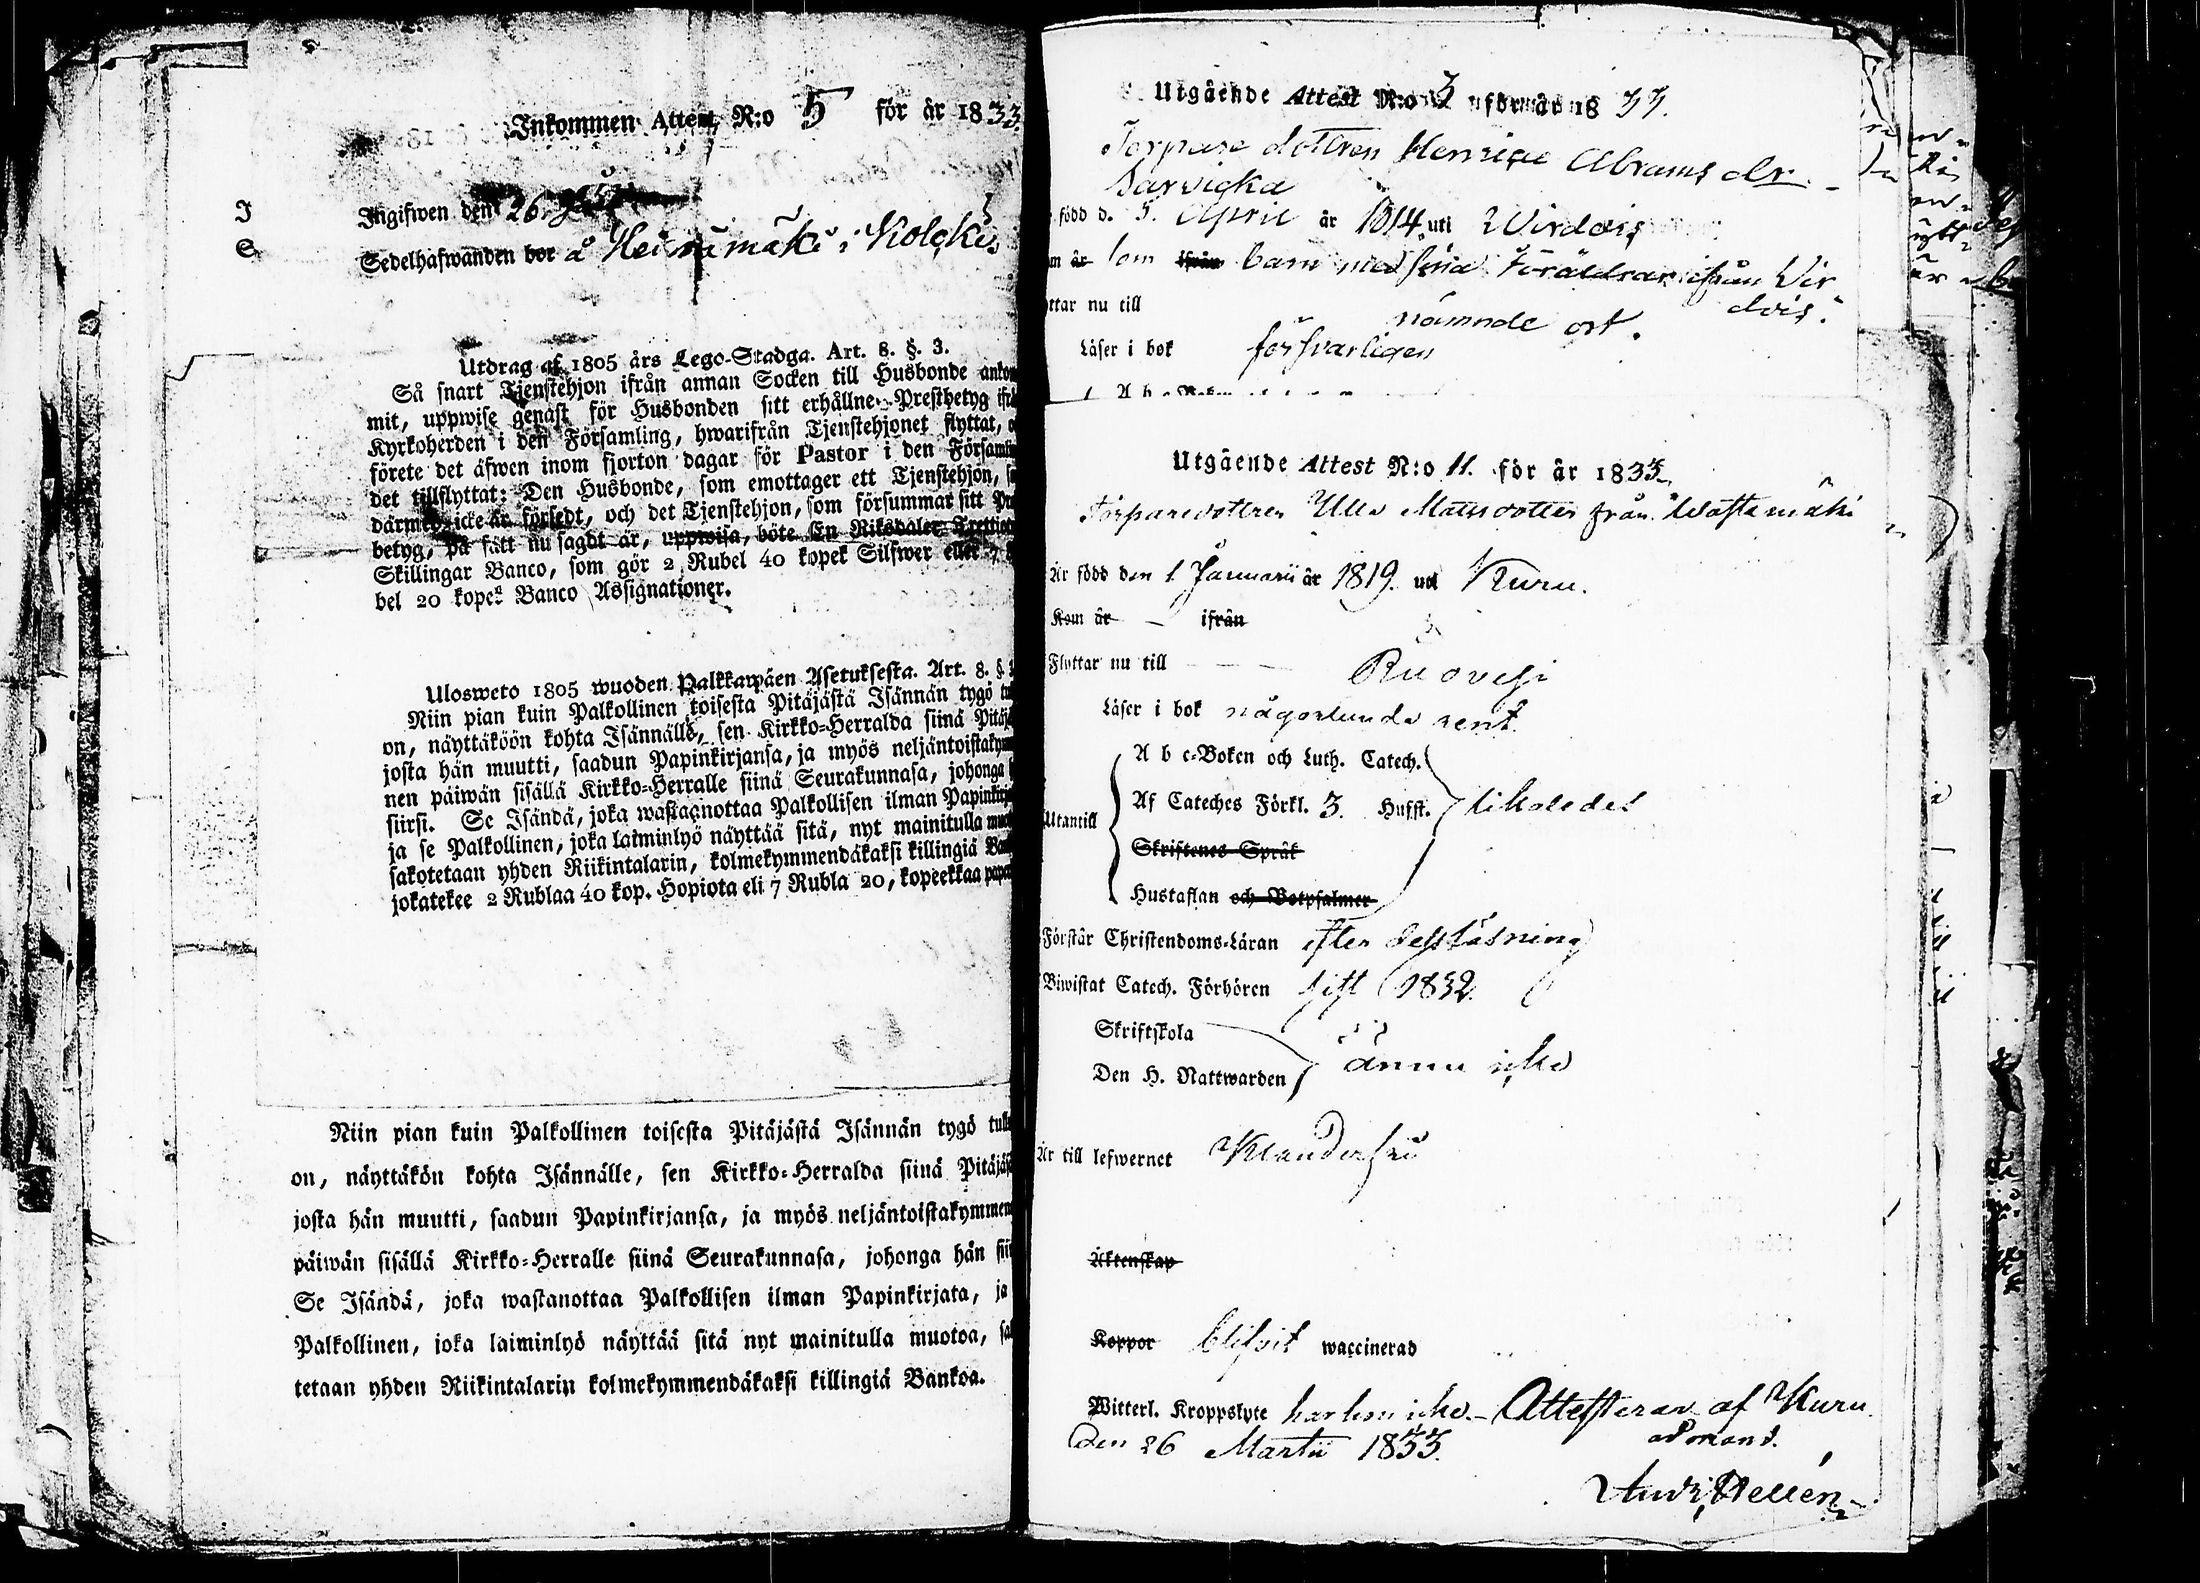 Inkommen Attest, N:o 5 för år 1833.
Ingifwen den 26
Sedelhafwanden bor å Heinämäki i Kolcki
I
S
Utdrag af 1805 års Lego-Stadga. Art. 8. §. 3.
Så snart Tjenstehjon ifrån annan Socken till Husbonde ankom
mit, uppwise genast för Husbonden sitt erhållne Prestbetyg ifrå
Kyrkoherden i den Församling, hwarifrån Tjenstehjonet flyttat, o
förete det äfwen inom fjorton dagar för Pastor i den Församlin
det tillflyttat: Den Husbonde, som emottager ett Tjenstehjon, so
därmed icke är försedt, och det Tjenstehjon, som försummar sitt Pre
betyg, på sätt nu sagdt är, uppwisa, böte En Riksdaler Trettio
Skillingar Banco, som gör 2 Rubel 40 kopek Silfwer eller 7
bel 20 kopek Banco Assignationer.
Ulosweto 1805 wuoden Palkkawäen Asetuksesta. Art. 8. §
Niin pian kuin Palkollinen toisesta Pitäjästä Isännän tygö tu
on, näyttäköön kohta Isännälle, sen Kirkko-Herralda siinä Pitäjä
josta hän muutti, saadun Papinkirjansa, ja myös neljäntoistakym
nen päiwän sisällä Kirkko-Herralle siinä Seurakunnasa, johonga
siirsi. Se Isändä, joka wastaanottaa Palkollisen ilman Papinkirja
ja se Palkollinen, joka laiminlyö näyttää sitä, nyt mainitulla muo
sakotetaan yhden Riikintalarin, kolmekymmendäkaksi killingiä Ban
jokatekee 2 Rublaa 40 kop. Hopiota eli 7 Rubla 20, kopeekkaa pape
Niin pian kuin Palkollinen toisesta Pitäjästä Isännän tygö tull
on, näyttäkön kohta Isännälle, sen Kirkko-Herralda siinä Pitäjäs
josta hän muutti, saadun Papinkirjansa, ja myös neljäntoistakymmen
päiwän sisällä Kirkko-Herralle siinä Seurakunnasa, johonga hän sii
Se Isändä, joka wastanottaa Palkollisen ilman Papinkirjata, ja
Palkollinen, joka laiminlyö näyttää sitä nyt mainitulla muotoa, sa
tetaan yhden Riikintalarin kolmekymmendäkaksi killingiä Bankoa.
Utgående Attest N:o 3 för år 1833.
Torpare dottren Henrica Abrams dr
Sarvicka
född d. 5. April år 1814 uti Wirdois
m år som ifrån barn med sina Föräldrar ifrån Vir
dois.
ttar nu till nämnde ort.
Läser i bok försvarligen
A b c-Boken
Utgående Attest N:o 11. för år 1833.
Torparedottren Ulla Mattsdotter från Wästämäki
Är född den 1. Januarii år 1819. uti Kuru.
Kom år – ifrån
Flyttar nu till Ruovesi
Läser i bok någorlunda rent.
A b c-Boken och Luth. Catech.
Utantill
Af Cateches Förkl. 3. Hufst. likaledes
Skriftenes Språk
Hustaflan och Botpsalmer
Förstår Christendoms-Läran efter dess läsning
Biwistat Catech. Förhören sist 1832.
Skriftskola
Den H. Nattwarden ännu icke
Är till lefwernet Klanderfri
Äktenskap
Koppor blifvit waccinerad
Witterl. Kroppslyte har hon icke. – Attesterar af Kuru
Den 26 Martii 1833.